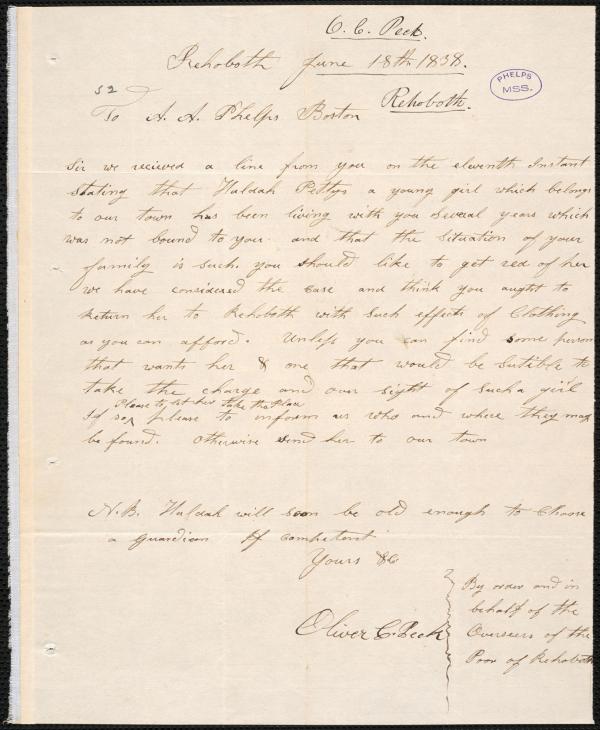 O. C. Peck.
Rehoboth June 18th 1838.
52
PHELPS
MSS.
Rehoboth.
To A. A. Phelps Boston
Sir we recieved a line from you on the eleventh Instant
Stating that Huldah Pettys a young girl which belongs
to our town has been living with you several years which
was not bound to you and that the situation of your
family is such you should like to get red of her
we have considered the case and think you aught to
Return her to Rehoboth with such effects of Clothing
as you can afford. Unless you can find some person
that wants her & one that would be sutible to
take the charge and over sight of such a girl
Please to let her take the Place
If so please to inform us who and where they may
be found. otherwise send her to our town
N.B. Huldah will soon be old enough to Choose
a guardien If competent
Yours &c
Oliver C. Peck
By order and in
behalf of the
Overseers of the
Poor of Rehoboth